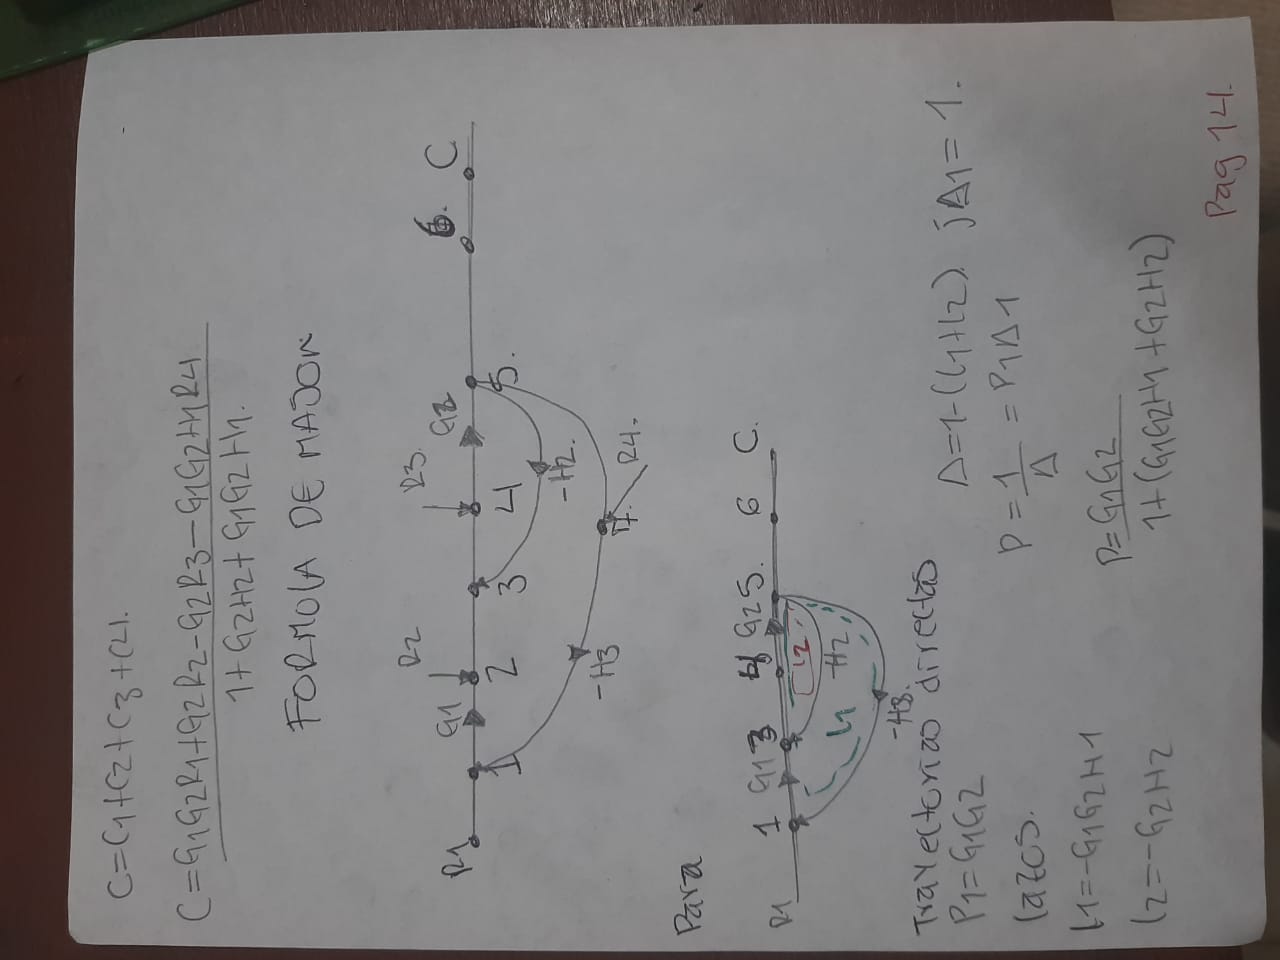 C=C1+C2+C3+C4.
C=G1G2R1+G2R2-G2R3-G1G2H1R4
1+G2H2+G1G2H1.
FORMOLA DE MASON
R2
R3.
R1
G1
G2
6.
C
1
2
3
4
5.
-H2.
-H3
7.
R4.
Para
R1
1
G1
3
4
G2
5.
6
C.
L2
L1
-H2
-H3.
Trayectorias directas
P1=G1G2
Δ=1-(L1+L2) jΔ1=1.
lazos.
P=1/Δ=P1Δ1
L1=-G1G2H1
P=G1G2
L2=-G2H2
1+(G1G2H1+G2H2)
Pag 14.